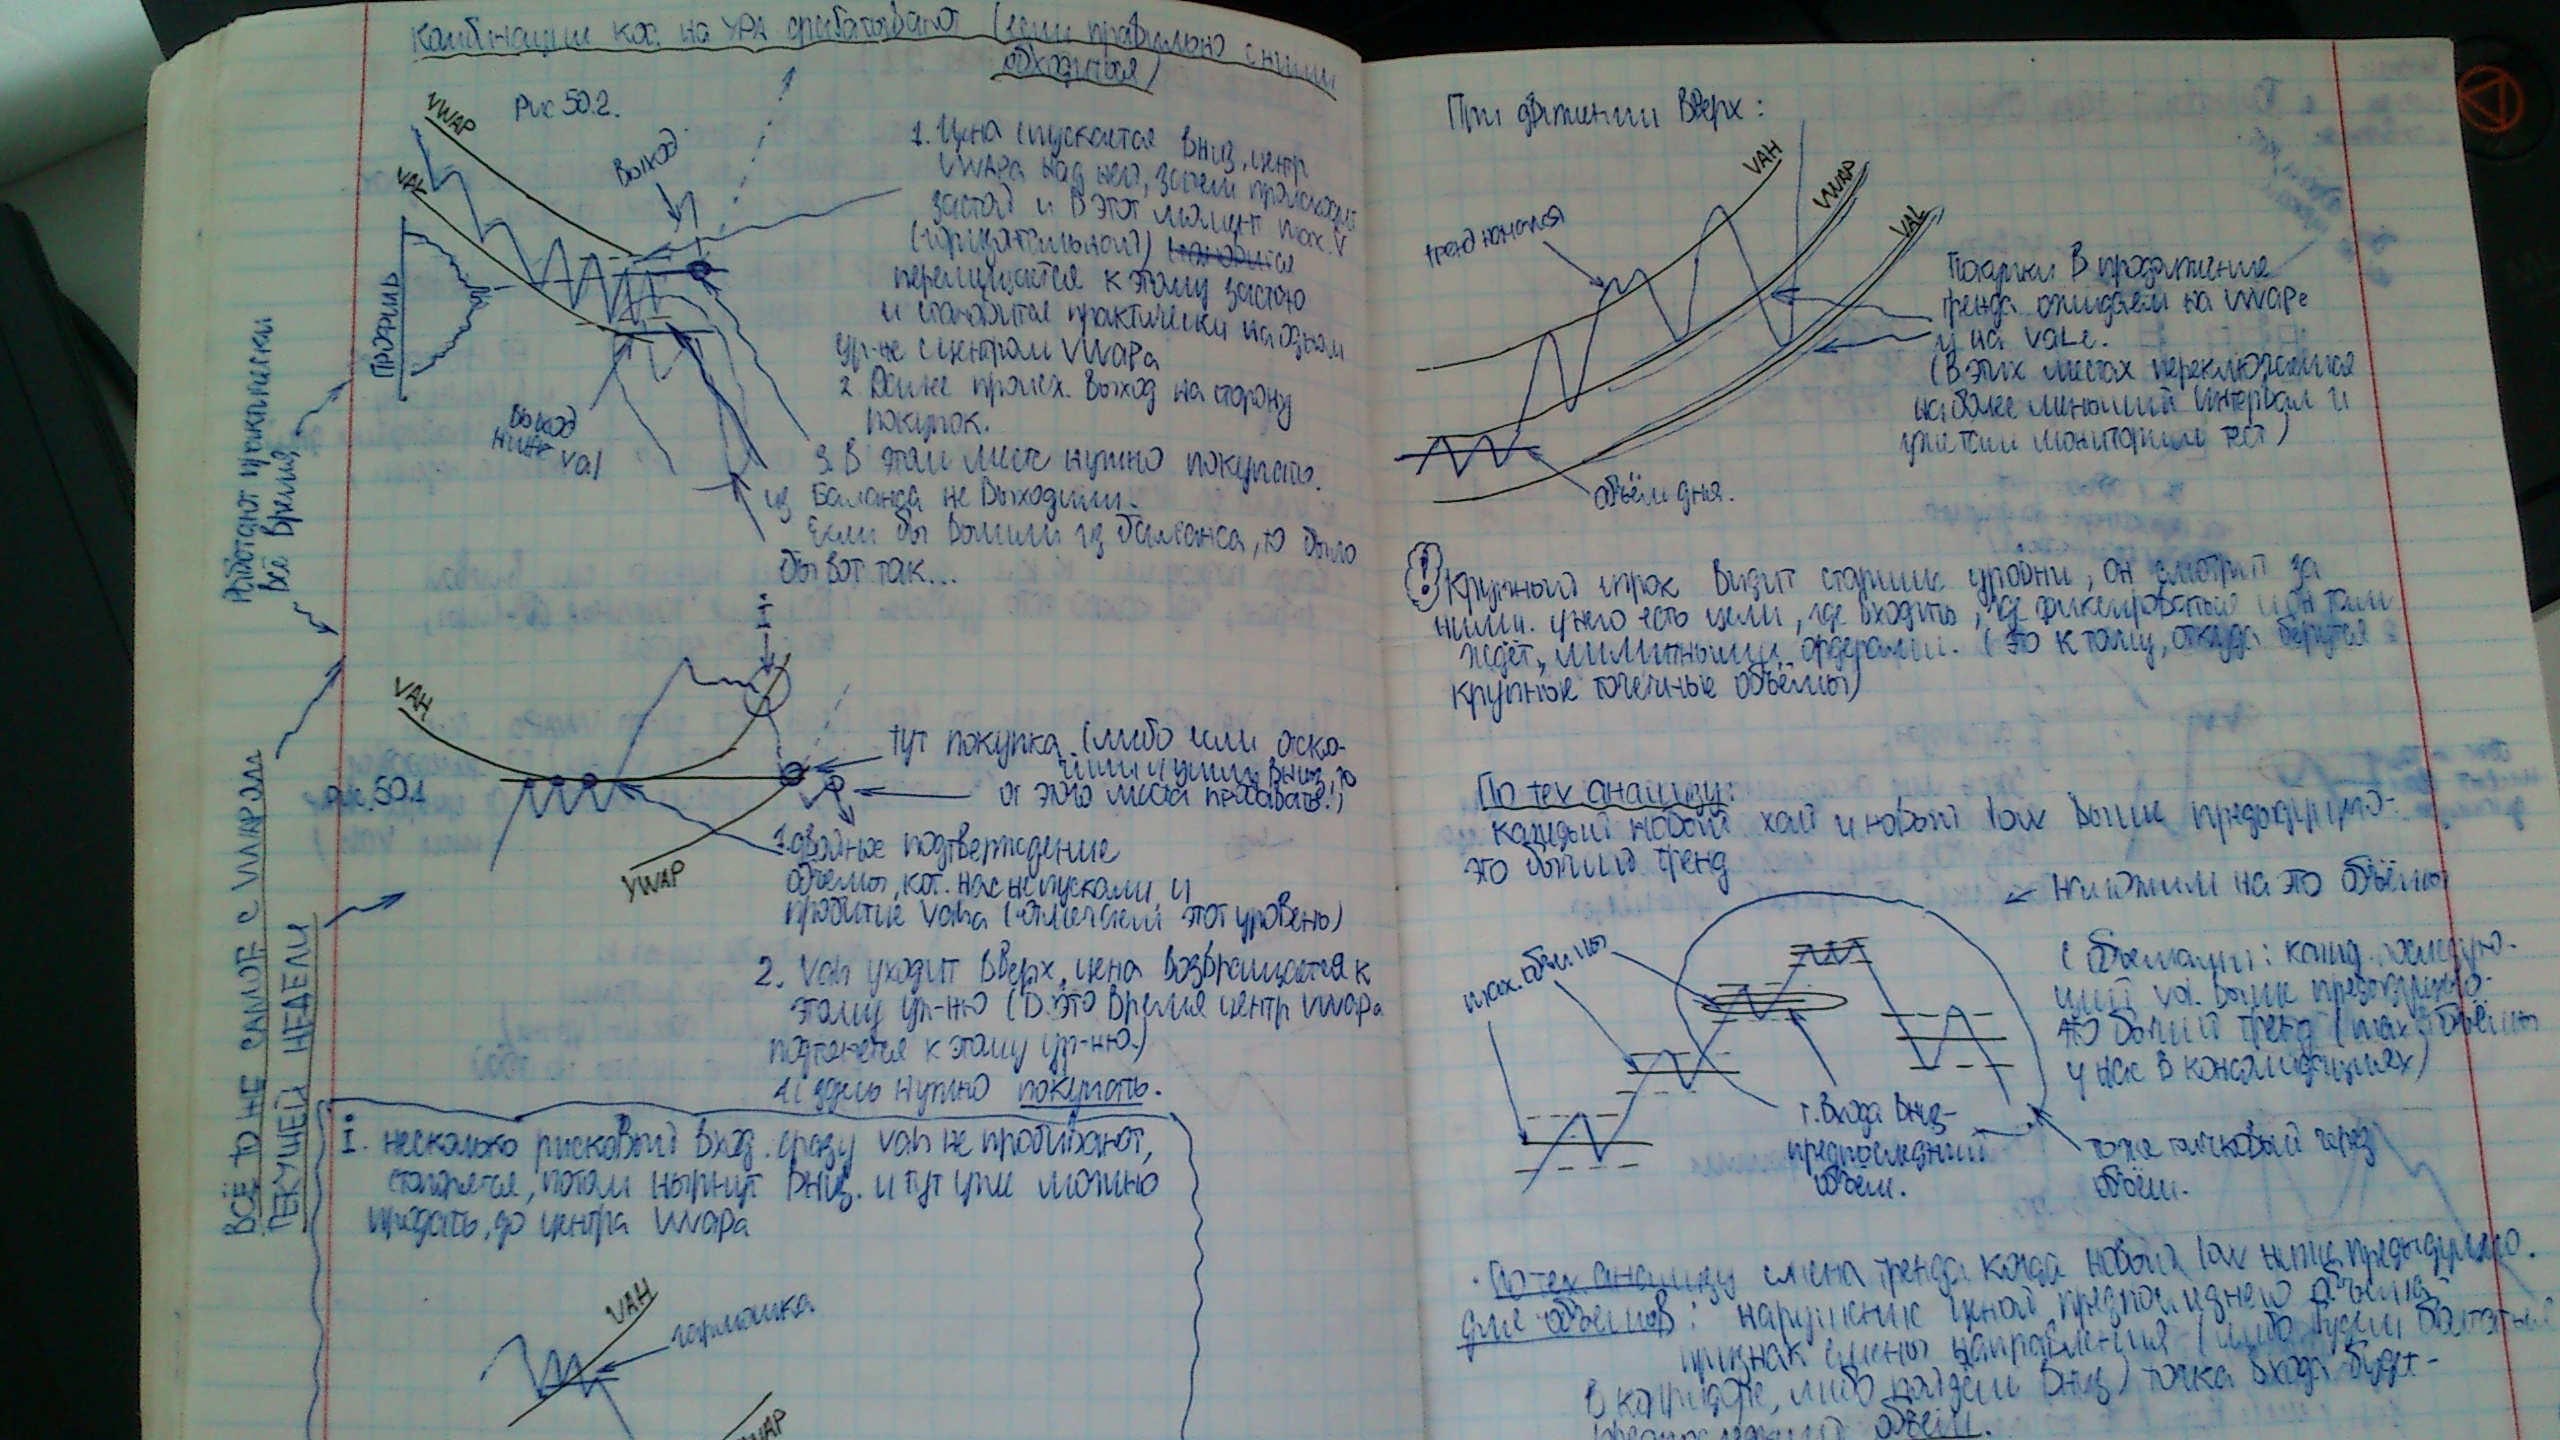 Комбинации кот. на УРА срабатывают (если правильно с ними
обходиться)
Рис 50.2.
VWAP
VAL
Выход
Профиль
Выход
ниже val
1. Цена спускается вниз, центр
VWAPа над ней, затем происходит
застой и в этот момент max. V
(горизонтальной)
перемещается к этому застою
и становится практически на одном
ур-не с центром VWAPа
2. Далее происх. выход на сторону
покупок.
3. В этом месте нужно покупать.
из баланса не выходили.
Если бы вышли из баланса, то было
бы вот так...
Работают практически
всё время
ВСЁ ТО ЖЕ САМОЕ С VWAPом
ТЕКУЩЕЙ НЕДЕЛИ
I.
VAH
Рис. 50.1
VWAP
тут покупка (либо если
и ушли вниз, то
от этого места продавать!)
1. двойное подтверждение
объёмы, кот. нас не пускали, и
пробитие vaha (отмечаем этот уровень)
2. Vah уходит вверх, цена возвращается к
этому ур-ню (в это время центр VWAPа
подтянется к этому ур-ню.)
и здесь нужно покупать.
I. несколько рисковый вход. сразу vah не пробивают,
стопорятся, потом нырнут вниз. и тут уже можно
продать, до центра VWAPа
VAH
гармошка
VWAP
При движении вверх:
VAH
VWAP
VAL
тренд начался
Покупки в продолжение
тренда ожидаем на VWAPе
и на VALе.
(в этих местах переключаемся
на более меньший интервал и
уже там мониторим тест)
объём дня.
! Крупный игрок видит старшие уровни, он смотрит за
ними. у него есть цели, где входить, где фиксироваться и он там
ждёт, лимитными ордерами. (это к тому, откуда берутся
крупные точечные объёмы)
По тех анализу:
каждый новый хай и новый low выше предыдущего-
это бычий тренд
Наложим на это объёмы
max. объёмы
с объёмами: кажд. последую-
щий vol. выше предыдущего-
это бычий тренд (max объёмы
у нас в консолидациях)
т. входа вниз-
предпоследний
объём.
тоже толчковый через
объём.
· По тех. анализу смена тренда когда новый low ниже предыдущего.
Для объёмов: нарушение ценой предпоследнего объёма
признак смены направления (либо будем болтаться
в коридоре, либо пойдём вниз) точка входа будет-
предпоследний объём.